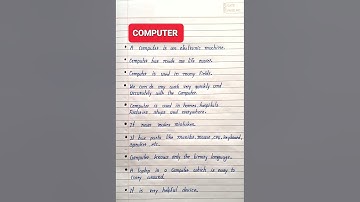 COMPUTER
A Computer is an electronic machine.
Computer has made our life easier.
Computer is used in many fields.
We can do any work very quickly and
accurately with the Computer.
Computer is used in homes, hospitals
stores, shops and everywhere.
It never makes mistakes.
It has parts like monitor, mouse, cpu, keyboard,
speaker etc.
Computer knows only the binary language.
A laptop is a computer which is easy to
carry around.
It is very helpful device.